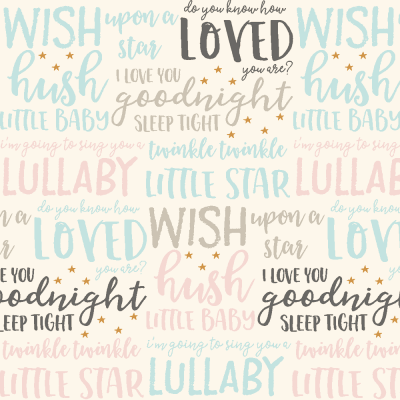 WISH
upon a
star
do you know how
LOVED
you are?
WISH
hush
LITTLE BABY
I LOVE YOU
goodnight
SLEEP TIGHT
hush
LITTLE BABY
i'm going to sing you a
LULLABY
twinkle twinkle
LITTLE STAR
i'm going to sing you a
LULLABY
upon a
do you know how
LOVED
you are?
WISH
upon a
star
do you know how
LOVED
you are?
I LOVE YOU
goodnight
SLEEP TIGHT
hush
LITTLE BABY
I LOVE YOU
goodnight
SLEEP TIGHT
twinkle twinkle
LITTLE STAR
i'm going to sing you a
LULLABY
twinkle twinkle
LITTLE STAR